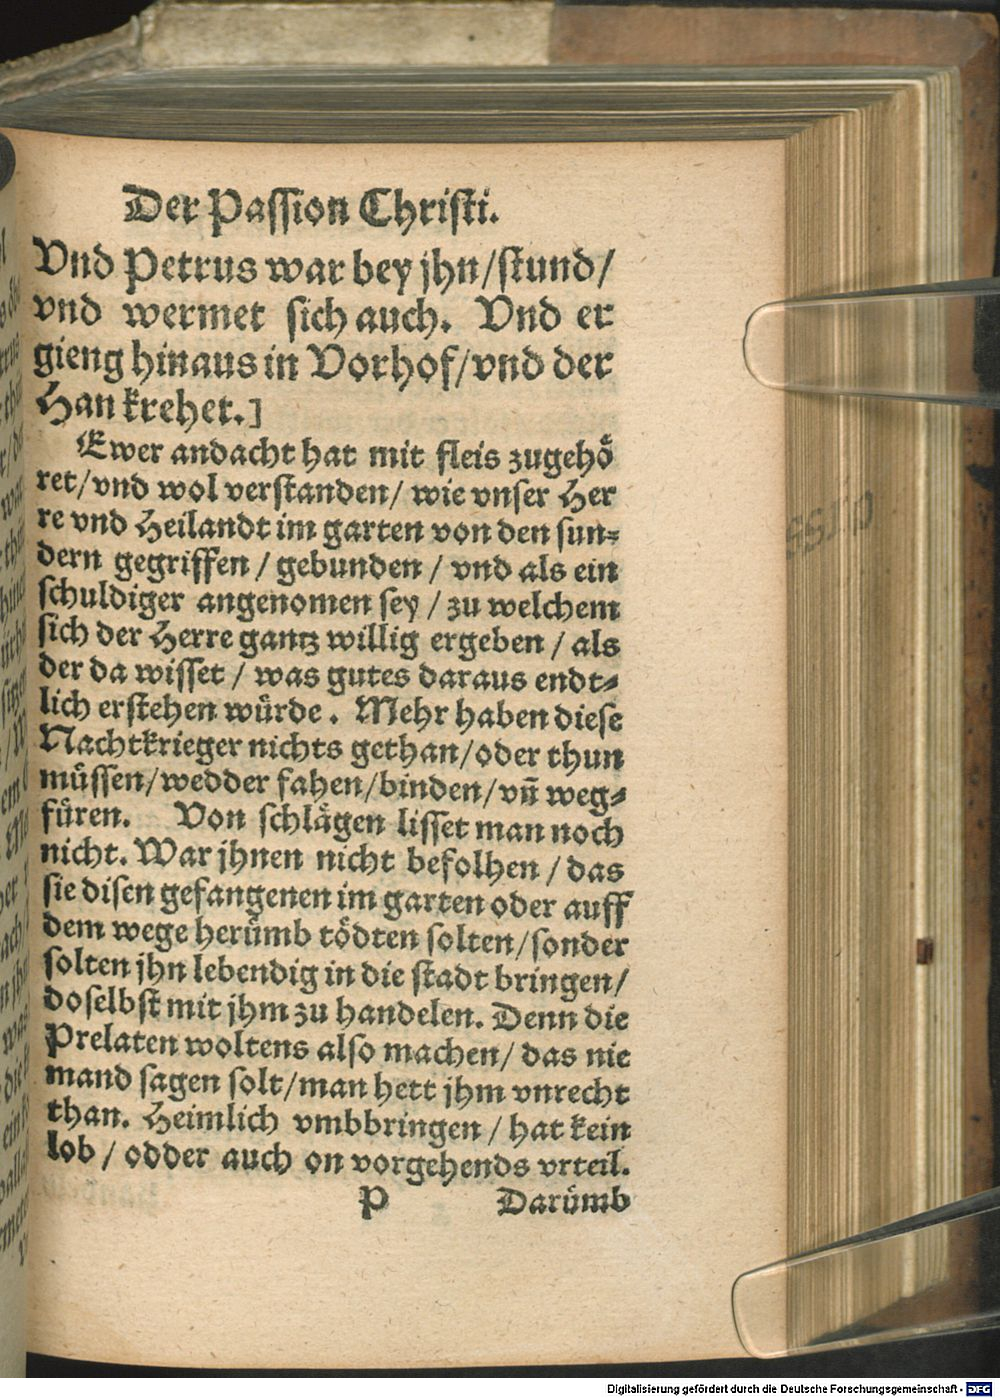 Der Passion Christi.
Vnd Petrus war bey jhn/stund/
vnd wermet sich auch. Vnd er
gieng hinaus in Vorhof/vnd der
Han krehet.]
Ewer andacht hat mit fleis zugehö
ret/vnd wol verstanden/ wie vnser Her
re vnd Heilandt im garten von den sun-
dern gegriffen / gebunden / vnd als ein
schuldiger angenomen sey / zu welchem
sich der Herre gantz willig ergeben / als
der da wisset / was gutes daraus endt-
lich erstehen würde. Mehr haben diese
Nachtkrieger nichts gethan/oder thun
müssen/wedder fahen/binden/vñ weg-
füren. Von schlägen lisset man noch
nicht. War jhnen nicht befolhen / das
sie disen gefangenen im garten oder auff
dem wege herümb tödten solten/sonder
solten jhn lebendig in die stadt bringen/
doselbst mit jhm zu handelen. Denn die
Prelaten woltens also machen/ das nie
mand sagen solt/man hett jhm vnrecht
than. Heimlich vmbbringen / hat kein
lob / odder auch on vorgehends vrteil.
P Darümb
Digitalisierung gefördert durch die Deutsche Forschungsgemeinschaft - DFG